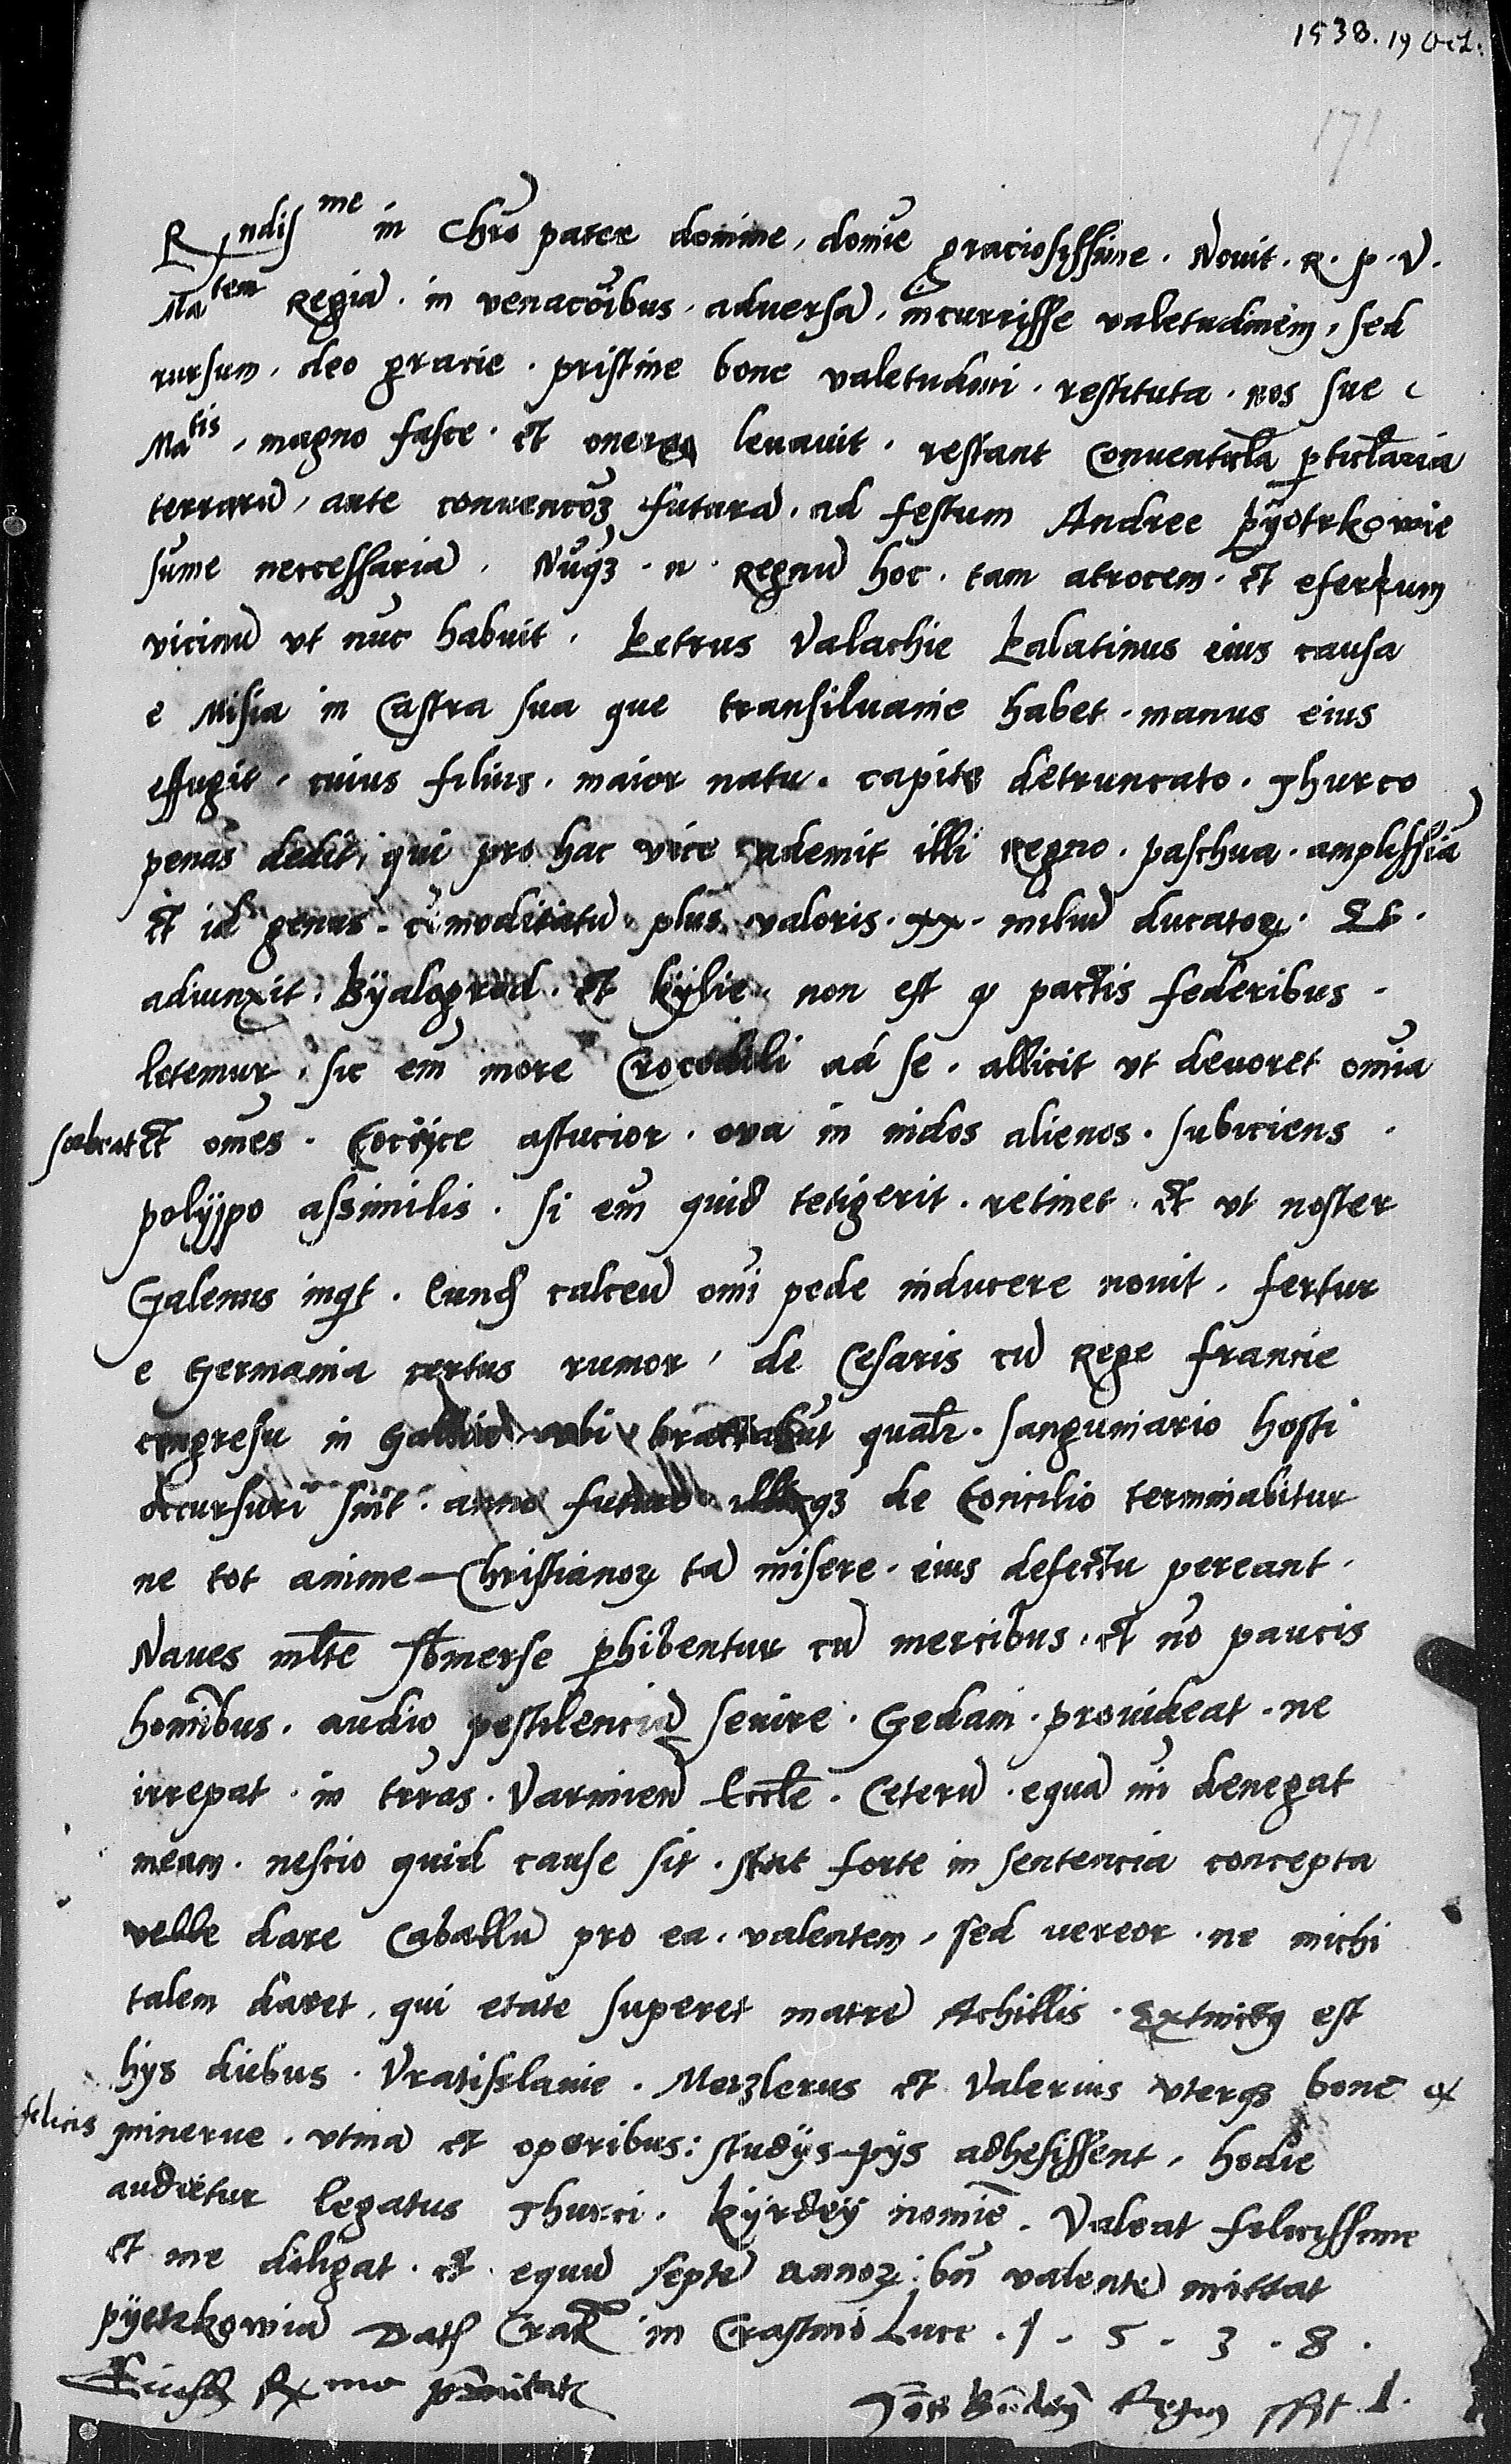 1538. 19 Oct.
171
Rndisme in Chro pater domine, domie graciosissime. Novit. R. p. V.
Matem Regiã. in venacõibus. adversã. incurrisse valetudinem, sed
rursum. deo gracie. pristine bone valetudini. restituta. nos sue
Matis, magno fasce. et onere levavit. restant Conventicla pticlaria
terrarũ, ante convencõȝ futurã. ad festum Andree pÿotrkowie
sume neccessaria. Nũqȝ. n. Regnũ hoc. tam atrocem. et eferum
vicinũ ut nũc habuit. Petrus Valachie Palatinus eius causa
e Misia in Castra sua que transilvanie habet. manus eius
effugit. cuius filius. maior natu. capite detruncato. Thurco
penas dedit, qui pro hac vice ademit illi Regno. paschua. amplissia
et id genus. cõmoditatũ plus valoris. xx. miliũ ducatoꝝ. Et.
adiunxit. Byalogrod. et kÿlie. non est qͦ pactis federibus.
letemur. sic em̃ more Crocodili ad se. allicit ut devoret om̃ia
scalvat et om̃es. Coccyce astucior. ova in nidos alienos. subiciens.
polÿpo assimilis. si em̃ quid tetigerit. retinet. et ut noster
Galenus inqt. Eund calceũ om̃i pede inducere novit. fertur
e Germania certus rumor, de Cesaris cũ Rege francie
congresu in Galliã ubi tractabũt qualr. sanguinario hosti
occursuri sint. anno futuro illicqȝ de Concilio terminabitur
ne tot anime Christianoꝝ tã misere. eius defectu pereant.
Naves mlte sbmerse phibentur cũ mercibus. et nõ paucis
homibus. audio pestilenciã sevire. Gedani. provideat. ne
irrepat. in tr̃ras. Varmieñ Eccle. Ceterũ. equã mi denegat
meam. nescio quid cause sit. stat forte in sentencia concepta
velle dare Caballũ pro ea. valentem, sed vereor. ne michi
talem daret, qui etate superet matrẽ Achillis. Extinctꝰ est
hys diebus. Vratislavie. Metzlerus et Valerius uterqȝ bone et
felicis minerve. utinã et operibus: studÿs pÿs adhesissent, hodie
audietur legatus Thurci. kÿrdeÿ nomie. Valeat felicissime
et me diligat. et equũ septẽ annoꝝ: bñ valentẽ mittat
pÿotrkowiã Datꝭ Crac in Crastino Luce. 1. 5. 3. 8.
Eiusd Rme pnitat